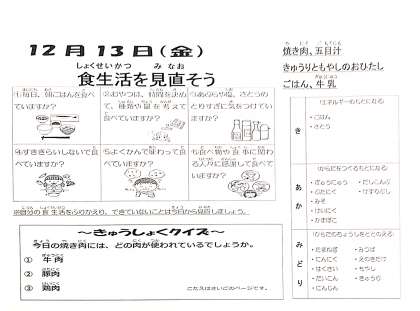 12月13日(金)
しょくせいかつ　み なお
食生活を見直そう
①毎日、朝ごはんを食べ
ていますか？
②おやつは、時間を決め
て、種類や量を考えて
食べていますか？
③あぶらや塩、さとうの
とりすぎに気をつけてい
ますか？
④すききらいしないで食
べていますか？
⑤よくかんで味わって食
べていますか？
⑥食べ物や食事に関わ
る人々に感謝して食べて
いますか？
※自分の食生活をふりかえり、できていないことは今日から見直しましょう。
～きゅうしょくクイズ～
今日の焼き肉には、どの肉が使われているでしょうか。
① 牛肉
② 豚肉
③ 鶏肉
こたえはさいごのページです。
焼き肉、五目汁
きゅうりともやしのおひたし
ごはん、牛乳
き
(エネルギーのもとになる)
・ごはん
・さとう
あか
(からだをつくるもとになる)
・ぎゅうにゅう
・ぶたにく
・みそ
・けいにく
・かまぼこ
・だしこんぶ
・けずりぶし
みどり
(からだのちょうしをととのえる)
・たまねぎ
・にんにく
・はくさい
・だいこん
・にんじん
・みつば
・えのきたけ
・もやし
・きゅうり